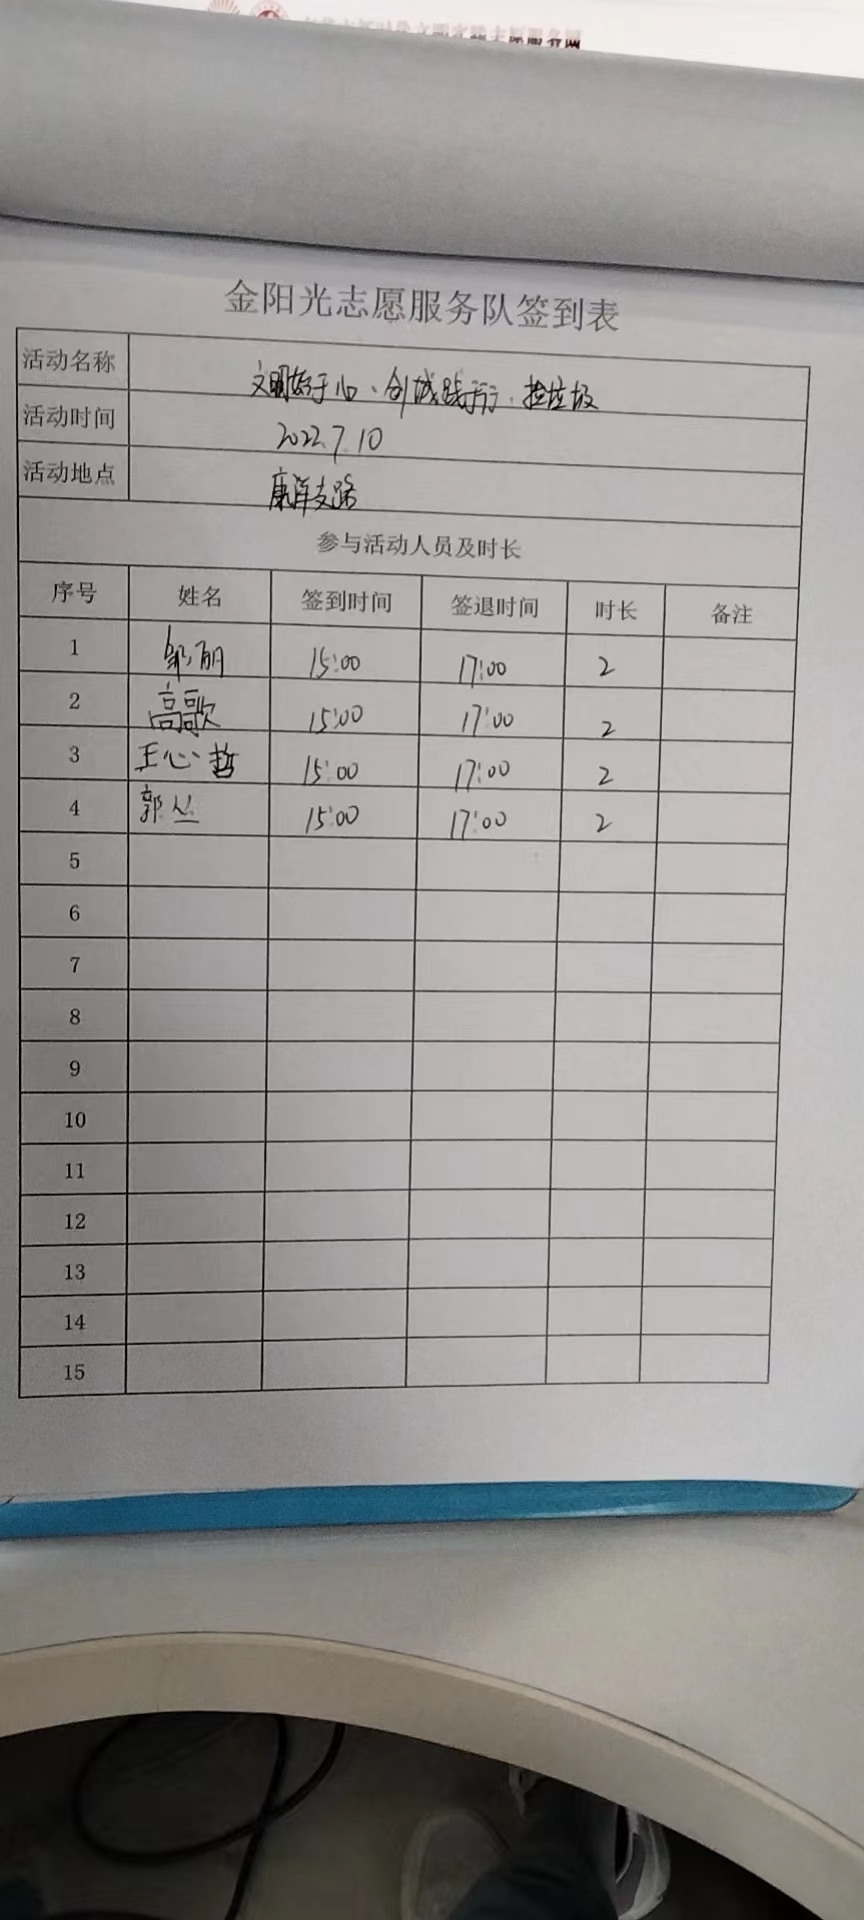 金阳光志愿服务队签到表
活动名称 文明始于心、创城践于行、捡垃圾
活动时间 2022.7.10
活动地点 康洋支路
参与活动人员及时长
序号 姓名 签到时间 签退时间 时长 备注
1 邹丽 15:00 17:00 2
2 高歌 15:00 17:00 2
3 王心哲 15:00 17:00 2
4 郭丛 15:00 17:00 2
5
6
7
8
9
10
11
12
13
14
15